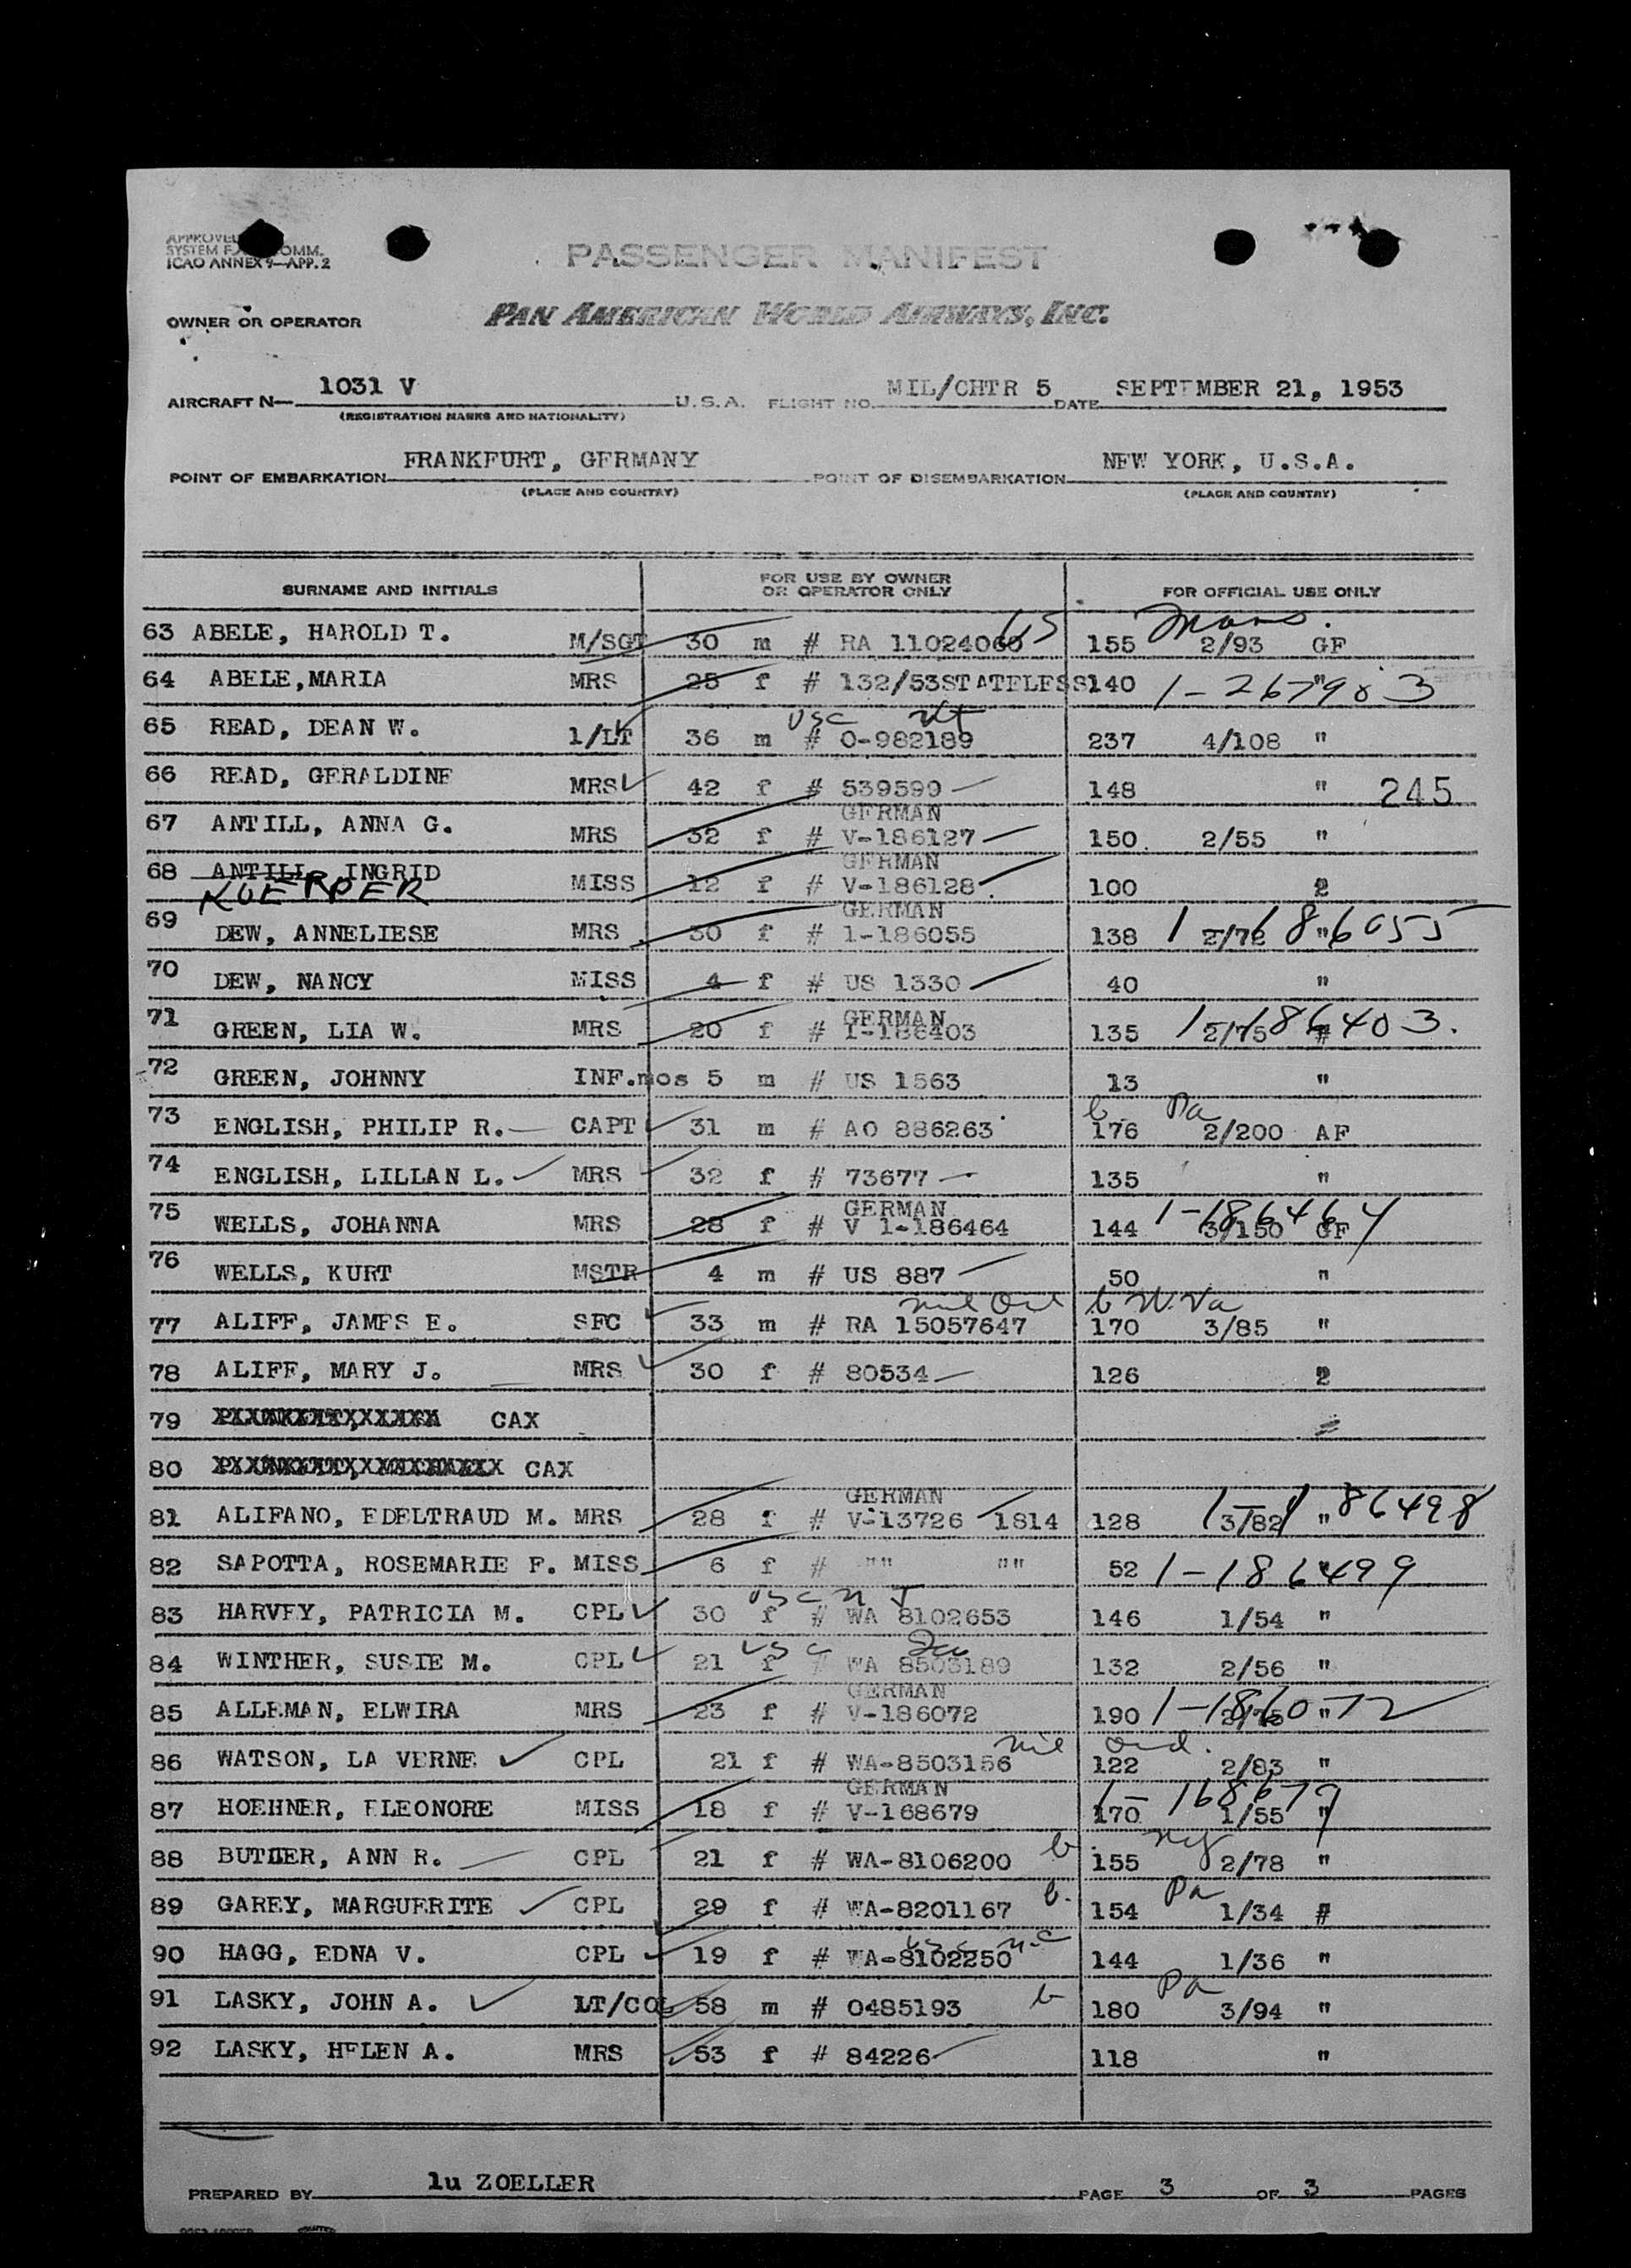 SYSTEM F OMM.
ICAO ANNEX 9—APP. 2
PASSENGER MANIFEST
OWNER OR OPERATOR PAN AMERICAN WORLD AIRWAYS, INC.
AIRCRAFT N— 1031 V U.S.A. FLIGHT NO. MIL/CHTR 5 DATE SEPTEMBER 21, 1953
(REGISTRATION MARKS AND NATIONALITY)
POINT OF EMBARKATION FRANKFURT, GERMANY POINT OF DISEMBARKATION NEW YORK, U.S.A.
(PLACE AND COUNTRY) (PLACE AND COUNTRY)
SURNAME AND INITIALS FOR USE BY OWNER OR OPERATOR ONLY FOR OFFICIAL USE ONLY
63 ABELE, HAROLD T. M/SGT 30 m # RA 11024060 155 Mass. 2/93 GF
64 ABELE,MARIA MRS 25 f # 132/53STATELESS 140 " 1-267983
65 READ, DEAN W. 1/LT 36 m usc # O-982189 237 4/108 "
66 READ, GERALDINE MRS 42 f # 539599 148 " 245
67 ANTILL, ANNA G. MRS 32 f # GERMAN V-186127 150 2/55 "
68 ANTILL, INGRID MISS 12 f # GERMAN V-186128 100 2
KOERPER
69 DEW, ANNELIESE MRS 30 f # GERMAN 1-186055 138 2/72 " 1-186055
70 DEW, NANCY MISS 4 f # US 1330 40 "
71 GREEN, LIA W. MRS 20 f # GERMAN 1-186403 135 2/75 # 1-186403.
72 GREEN, JOHNNY INF.mos 5 m # US 1563 13 "
73 ENGLISH, PHILIP R. CAPT 31 m # AO 886263 b Pa 176 2/200 AF
74 ENGLISH, LILLAN L. MRS 32 f # 73677 135 "
75 WELLS, JOHANNA MRS 28 f # GERMAN V 1-186464 144 3/150 GF 1-186464
76 WELLS, KURT MSTR 4 m # US 887 50 "
77 ALIFF, JAMES E. SFC 33 m # RA 15057647 mil Ord b W. Va 170 3/85 "
78 ALIFF, MARY J. MRS 30 f # 80534 126 2
79 CAX
80 CAX
81 ALIFANO, EDELTRAUD M. MRS 28 f # GERMAN V-13726 1814 128 3/82 " 1-186498
82 SAPOTTA, ROSEMARIE F. MISS 6 f # "" "" 52 " 1-186499
83 HARVEY, PATRICIA M. CPL 30 f usc N J # WA 8102653 146 1/54 "
84 WINTHER, SUSIE M. CPL 21 f usc # WA 8503189 132 2/56 "
85 ALLEMAN, ELWIRA MRS 23 f # GERMAN V-186072 190 2/75 " 1-186072
86 WATSON, LA VERNE CPL 21 f # WA-8503156 mil Ord. 122 2/83 "
87 HOEHNER, ELEONORE MISS 18 f # GERMAN V-168679 170 1/55 " 1-168679
88 BUTLER, ANN R. CPL 21 f # WA-8106200 b. NY 155 2/78 "
89 GAREY, MARGUERITE CPL 29 f # WA-8201167 b. Pa 154 1/34 #
90 HAGG, EDNA V. CPL 19 f # WA-8102250 usc N.C 144 1/36 "
91 LASKY, JOHN A. LT/COL 58 m # 0485193 b Pa 180 3/94 "
92 LASKY, HELEN A. MRS 53 f # 84226 118 "
PREPARED BY lu ZOELLER PAGE 3 OF 3 PAGES